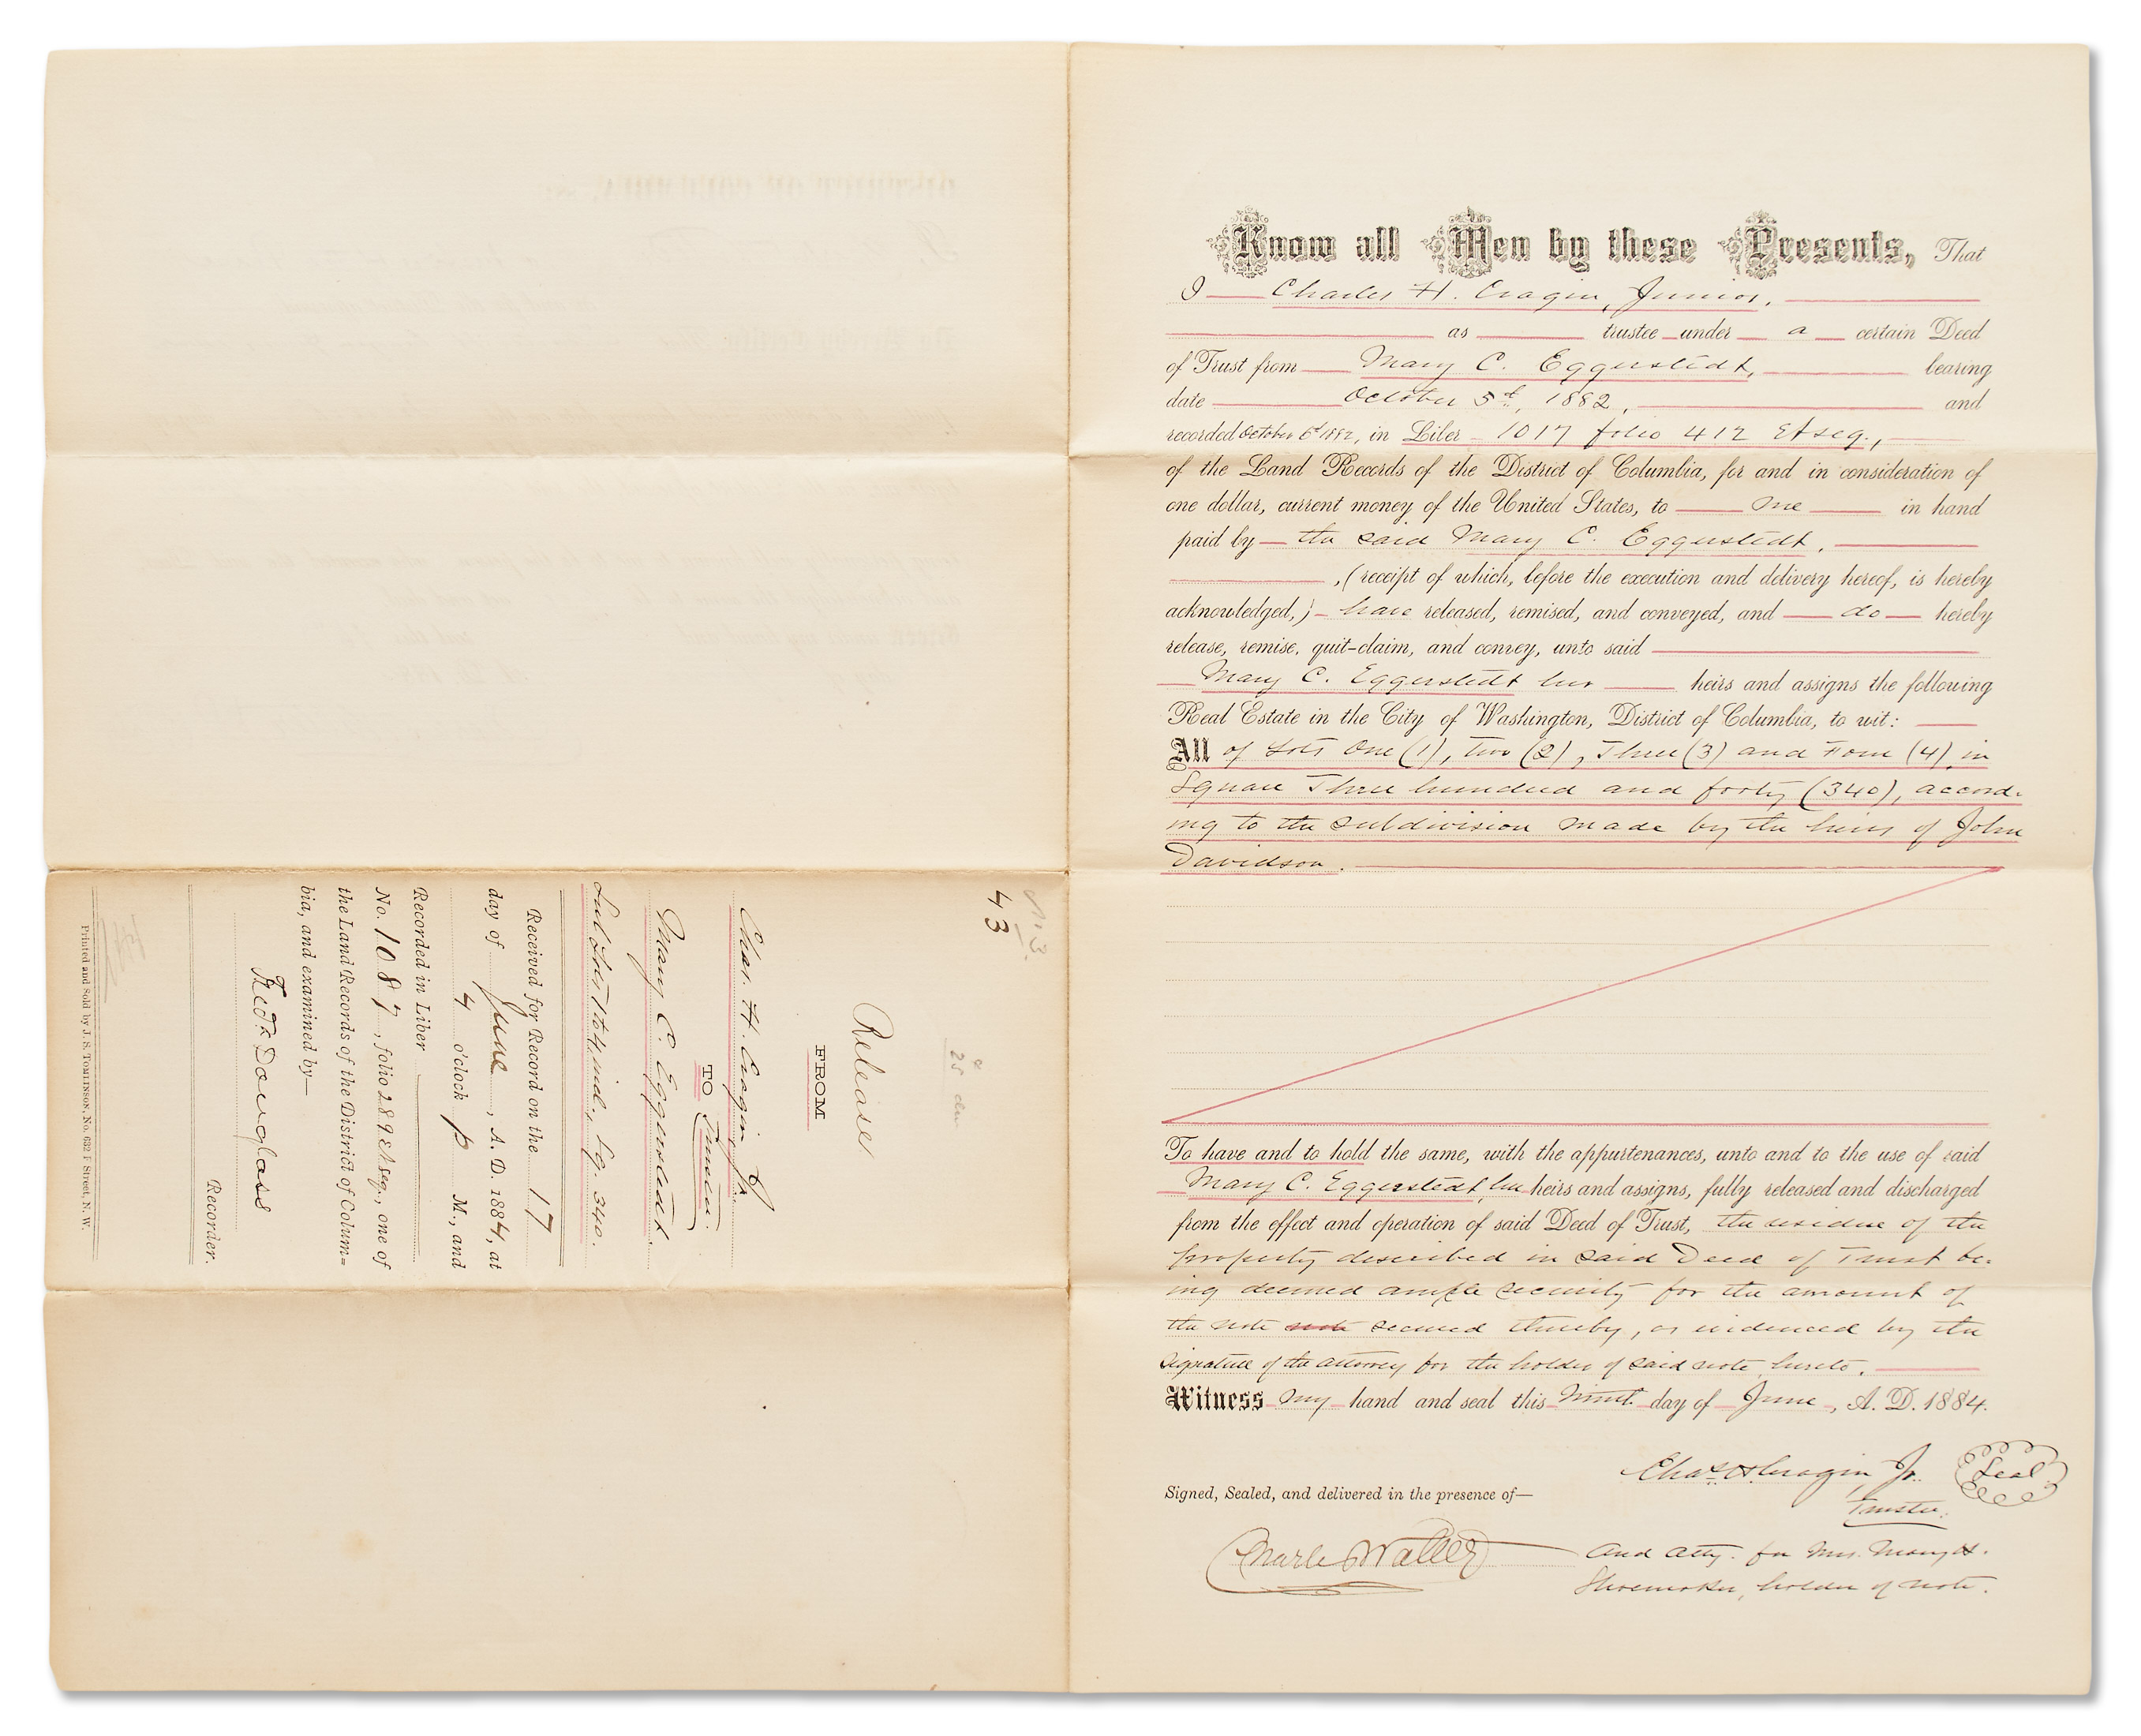 Know all Men by these Presents, That
I Charles H. Cragin, Junior,
as trustee under a certain Deed
of Trust from Mary C. Eggerstedt, bearing
date October 5th, 1882, and
recorded October 6th 1882, in Liber 1017 folio 412 Et seq.,
of the Land Records of the District of Columbia, for and in consideration of
one dollar, current money of the United States, to me in hand
paid by the said Mary C. Eggerstedt,
, (receipt of which, before the execution and delivery hereof, is hereby
acknowledged,) have released, remised, and conveyed, and do hereby
release, remise, quit-claim, and convey, unto said
Mary C. Eggerstedt her heirs and assigns the following
Real Estate in the City of Washington, District of Columbia, to wit:
All of Lots One (1), Two (2), Three (3) and Four (4), in
Square Three hundred and forty (340), accord-
ing to the subdivision made by the heirs of John
Davidson.
To have and to hold the same, with the appurtenances, unto and to the use of said
Mary C. Eggerstedt, her heirs and assigns, fully released and discharged
from the effect and operation of said Deed of Trust, the residue of the
property described in said Deed of Trust be-
ing deemed ample security for the amount of
the note note secured thereby, as evidenced by the
signature of the attorney for the holder of said note, hereto.
Witness my hand and seal this Ninth day of June, A. D. 1884.
Chas. H. Cragin, Jr. Seal
Trustee.
Signed, Sealed, and delivered in the presence of—
Charles Walter
And Atty. for Mrs. Mary H.
Shoemaker, holder of note.
43
Release
FROM
Chas. H. Cragin Jr
Trustee.
TO
Mary C. Eggerstedt.
Sub Lots 1 to 4, incl., Sq. 340.
Received for Record on the 17
day of June, A. D. 1884, at
4 o'clock P M., and
Recorded in Liber
No. 1087, folio 289 Et seq., one of
the Land Records of the District of Colum=
bia, and examined by—
Fredk Douglass
Recorder.
Printed and Sold by J. S. TOMLINSON, No. 632 F Street, N. W.